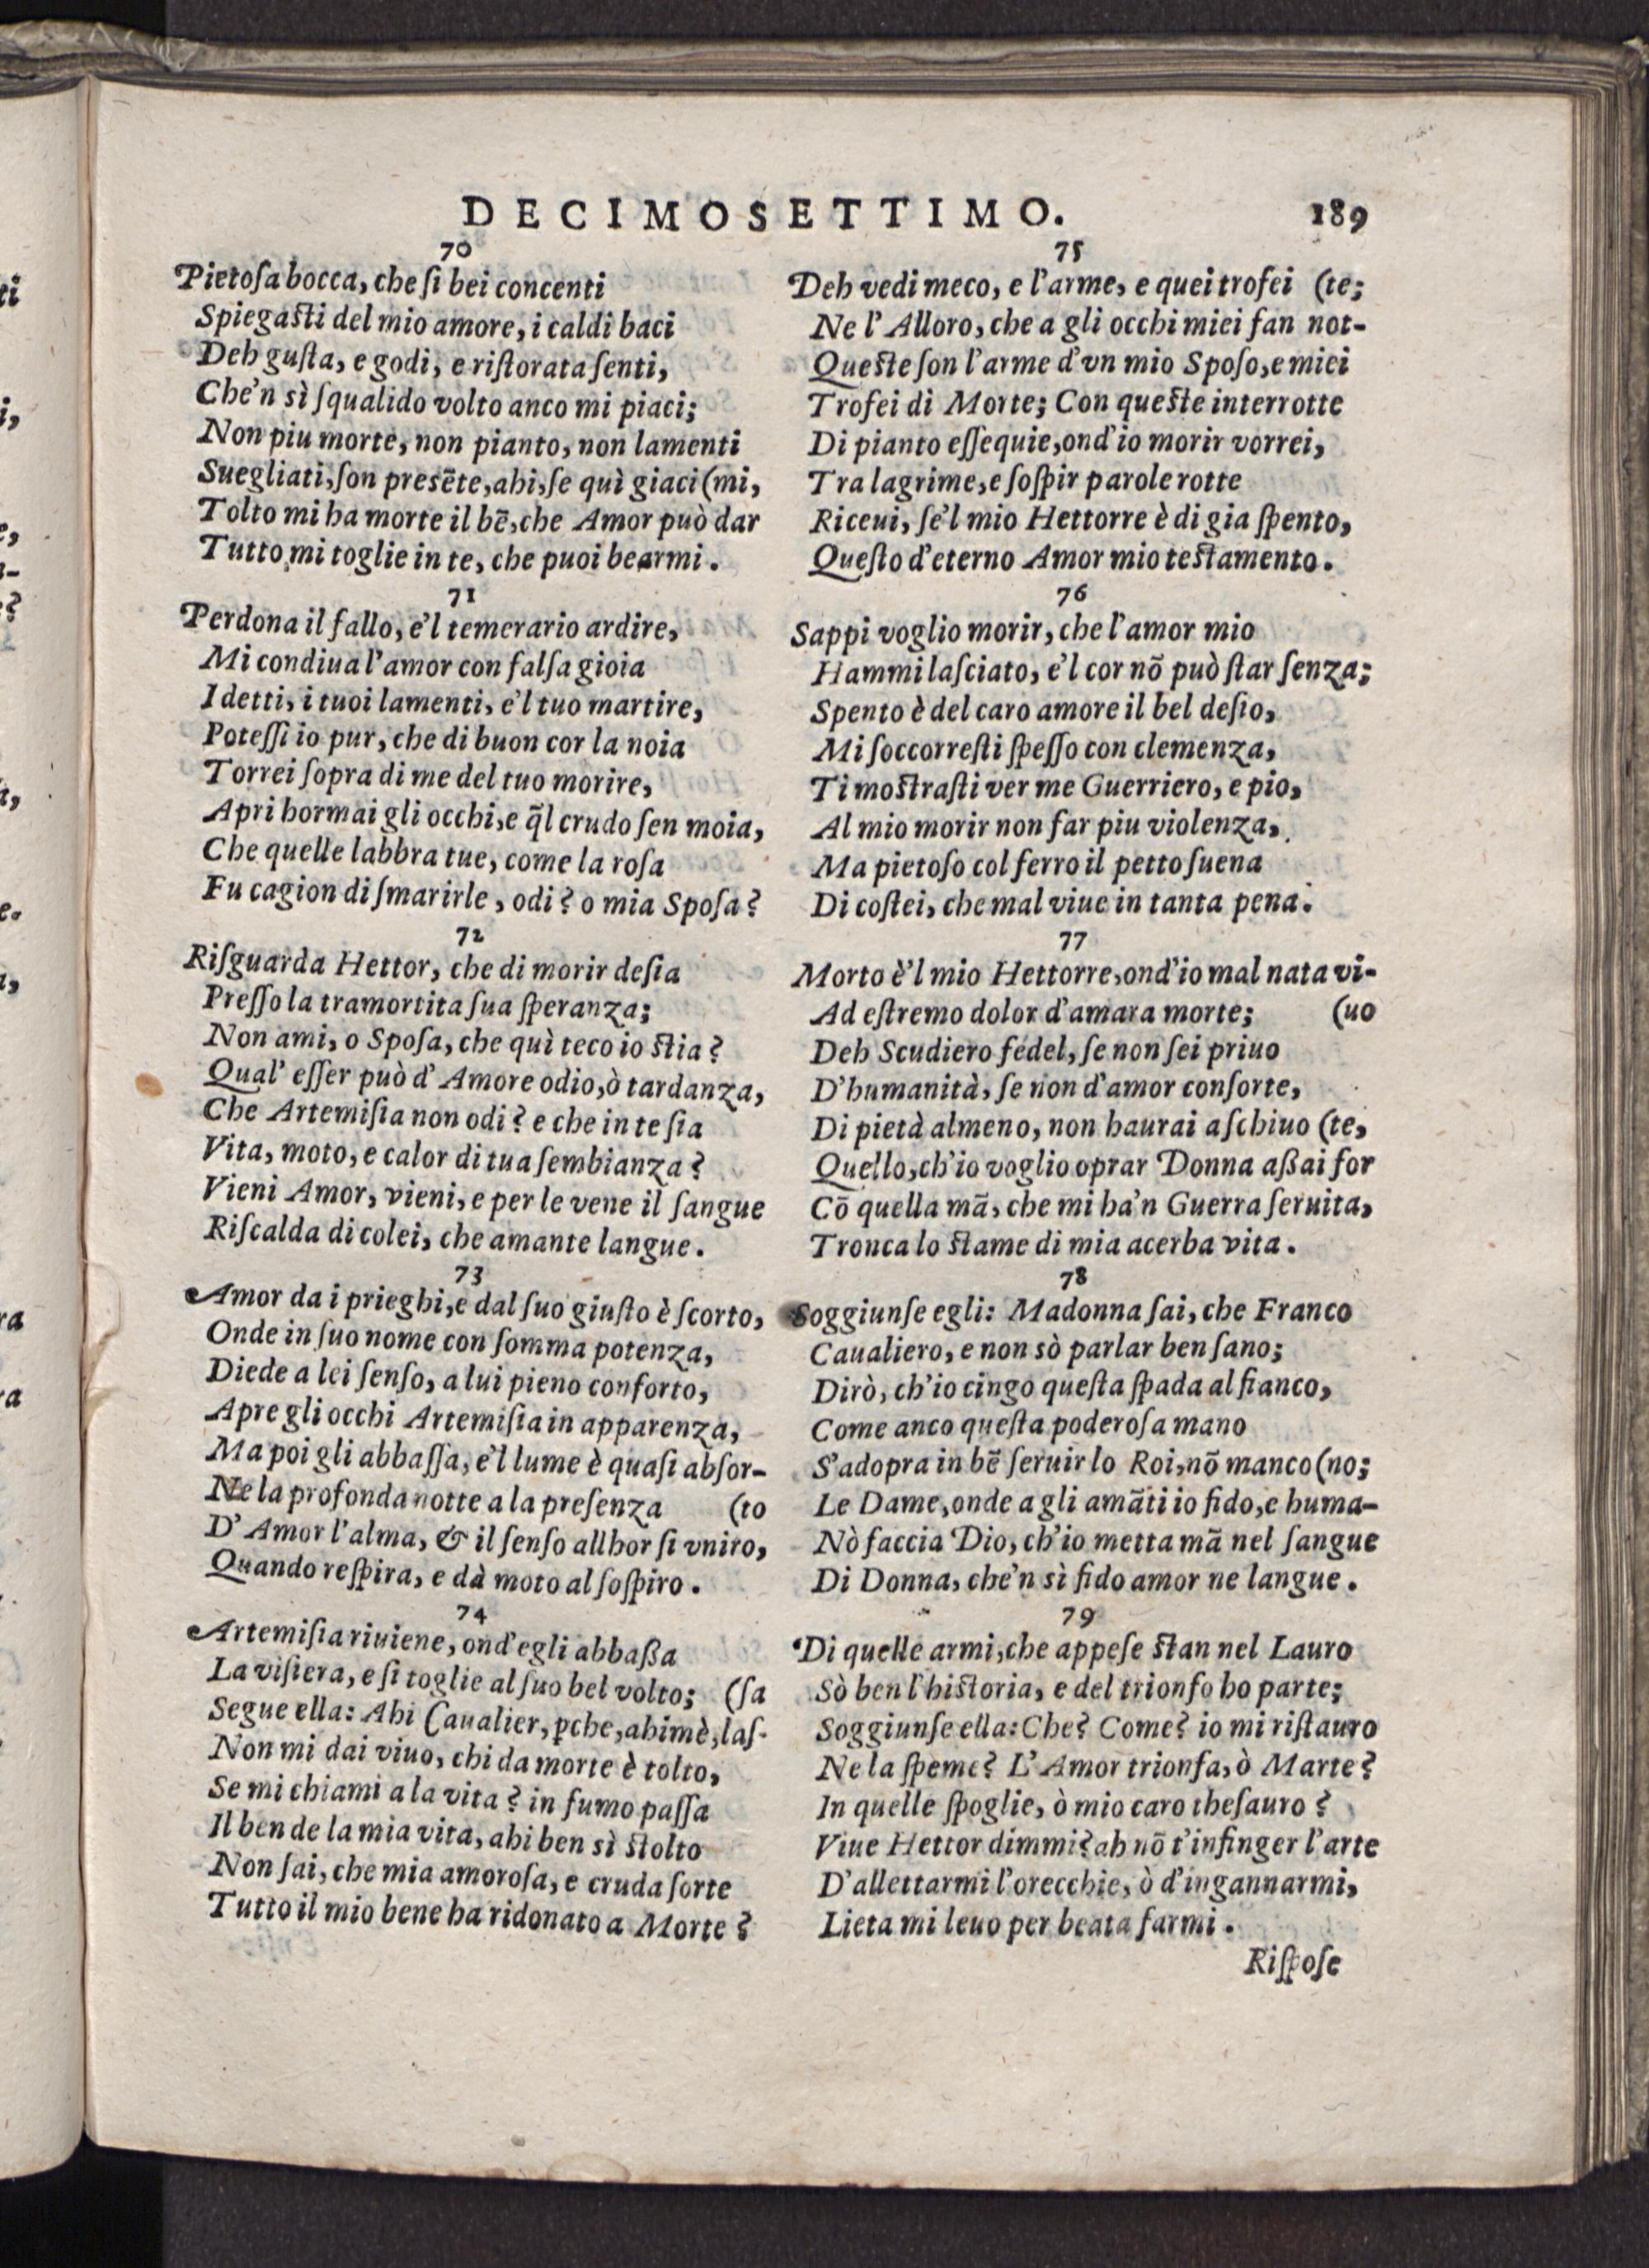 DECIMOSETTIMO. 189
70
Pietoſa bocca, che ſi bei concenti
Spiegaſti del mio amore, i caldi baci
Deh guſta, e godi, e riſtorata ſenti,
Che'n sì ſqualido volto anco mi piaci;
Non piu morte, non pianto, non lamenti
Suegliati, ſon preſẽte, ahi, ſe quì giaci (mi,
Tolto mi ha morte il bẽ, che Amor può dar
Tutto mi toglie in te, che puoi bearmi.
71
Perdona il fallo, e'l temerario ardire,
Mi condiua l'amor con falſa gioia
I detti, i tuoi lamenti, e'l tuo martire,
Poteſſi io pur, che di buon cor la noia
Torrei ſopra di me del tuo morire,
Apri hormai gli occhi, e q̃l crudo ſen moia,
Che quelle labbra tue, come la roſa
Fu cagion di ſmarirle, odi? o mia Spoſa?
72
Riſguarda Hettor, che di morir deſia
Preſſo la tramortita ſua ſperanza;
Non ami, o Spoſa, che quì teco io ſtia?
Qual' eſſer può d'Amore odio, ò tardanza,
Che Artemiſia non odi? e che in te ſia
Vita, moto, e calor di tua ſembianza?
Vieni Amor, vieni, e per le vene il ſangue
Riſcalda di colei, che amante langue.
73
Amor da i prieghi, e dal ſuo giuſto è ſcorto,
Onde in ſuo nome con ſomma potenza,
Diede a lei ſenſo, a lui pieno conforto,
Apre gli occhi Artemiſia in apparenza,
Ma poi gli abbaſſa, e'l lume è quaſi abſor-
Ne la profonda notte a la preſenza (to
D'Amor l'alma, & il ſenſo allhor ſi vniro,
Quando reſpira, e dà moto al ſoſpiro.
74
Artemiſia riuiene, ond'egli abbaßa
La viſiera, e ſi toglie al ſuo bel volto; (ſa
Segue ella: Ahi Caualier, ꝑche, ahimè, laſ-
Non mi dai viuo, chi da morte è tolto,
Se mi chiami a la vita? in fumo paſſa
Il ben de la mia vita, ahi ben sì ſtolto
Non ſai, che mia amoroſa, e cruda ſorte
Tutto il mio bene ha ridonato a Morte?
75
Deh vedi meco, e l'arme, e quei trofei (te;
Ne l'Alloro, che a gli occhi miei fan not-
Queſte ſon l'arme d'vn mio Spoſo, e miei
Trofei di Morte; Con queſte interrotte
Di pianto eſſequie, ond'io morir vorrei,
Tra lagrime, e ſoſpir parole rotte
Riceui, ſe'l mio Hettorre è di gia ſpento,
Queſto d'eterno Amor mio teſtamento.
76
Sappi voglio morir, che l'amor mio
Hammi laſciato, e'l cor nõ può ſtar ſenza;
Spento è del caro amore il bel deſio,
Mi ſoccorreſti ſpeſſo con clemenza,
Ti moſtraſti ver me Guerriero, e pio,
Al mio morir non far piu violenza,
Ma pietoſo col ferro il petto ſuena
Di coſtei, che mal viue in tanta pena.
77
Morto è'l mio Hettorre, ond'io mal nata vi-
Ad eſtremo dolor d'amara morte; (uo
Deh Scudiero fedel, ſe non ſei priuo
D'humanità, ſe non d'amor conſorte,
Di pietà almeno, non haurai a ſchiuo (te,
Quello, ch'io voglio oprar Donna aßai for
Cõ quella mã, che mi ha'n Guerra ſeruita,
Tronca lo ſtame di mia acerba vita.
78
Soggiunſe egli: Madonna ſai, che Franco
Caualiero, e non sò parlar ben ſano;
Dirò, ch'io cingo queſta ſpada al fianco,
Come anco queſta poderoſa mano
S'adopra in bẽ ſeruir lo Roi, nõ manco (no;
Le Dame, onde a gli amãti io fido, e huma-
Nò faccia Dio, ch'io metta mã nel ſangue
Di Donna, che'n sì fido amor ne langue.
79
Di quelle armi, che appeſe ſtan nel Lauro
Sò ben l'hiſtoria, e del trionfo ho parte;
Soggiunſe ella: Che? Come? io mi riſtauro
Ne la ſpeme? L'Amor trionfa, ò Marte?
In quelle ſpoglie, ò mio caro theſauro?
Viue Hettor dimmi? ah nõ t'infinger l'arte
D'allettarmi l'orecchie, ò d'ingannarmi,
Lieta mi leuo per beata farmi.
Riſpoſe